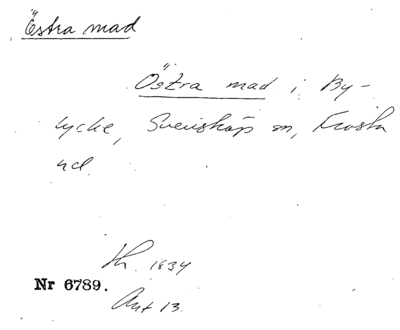 Östra mad
Östra mad i By-
lycke, Svensköp sn, Frosta
hd.
1834
Nr 6789.
Akt 13.